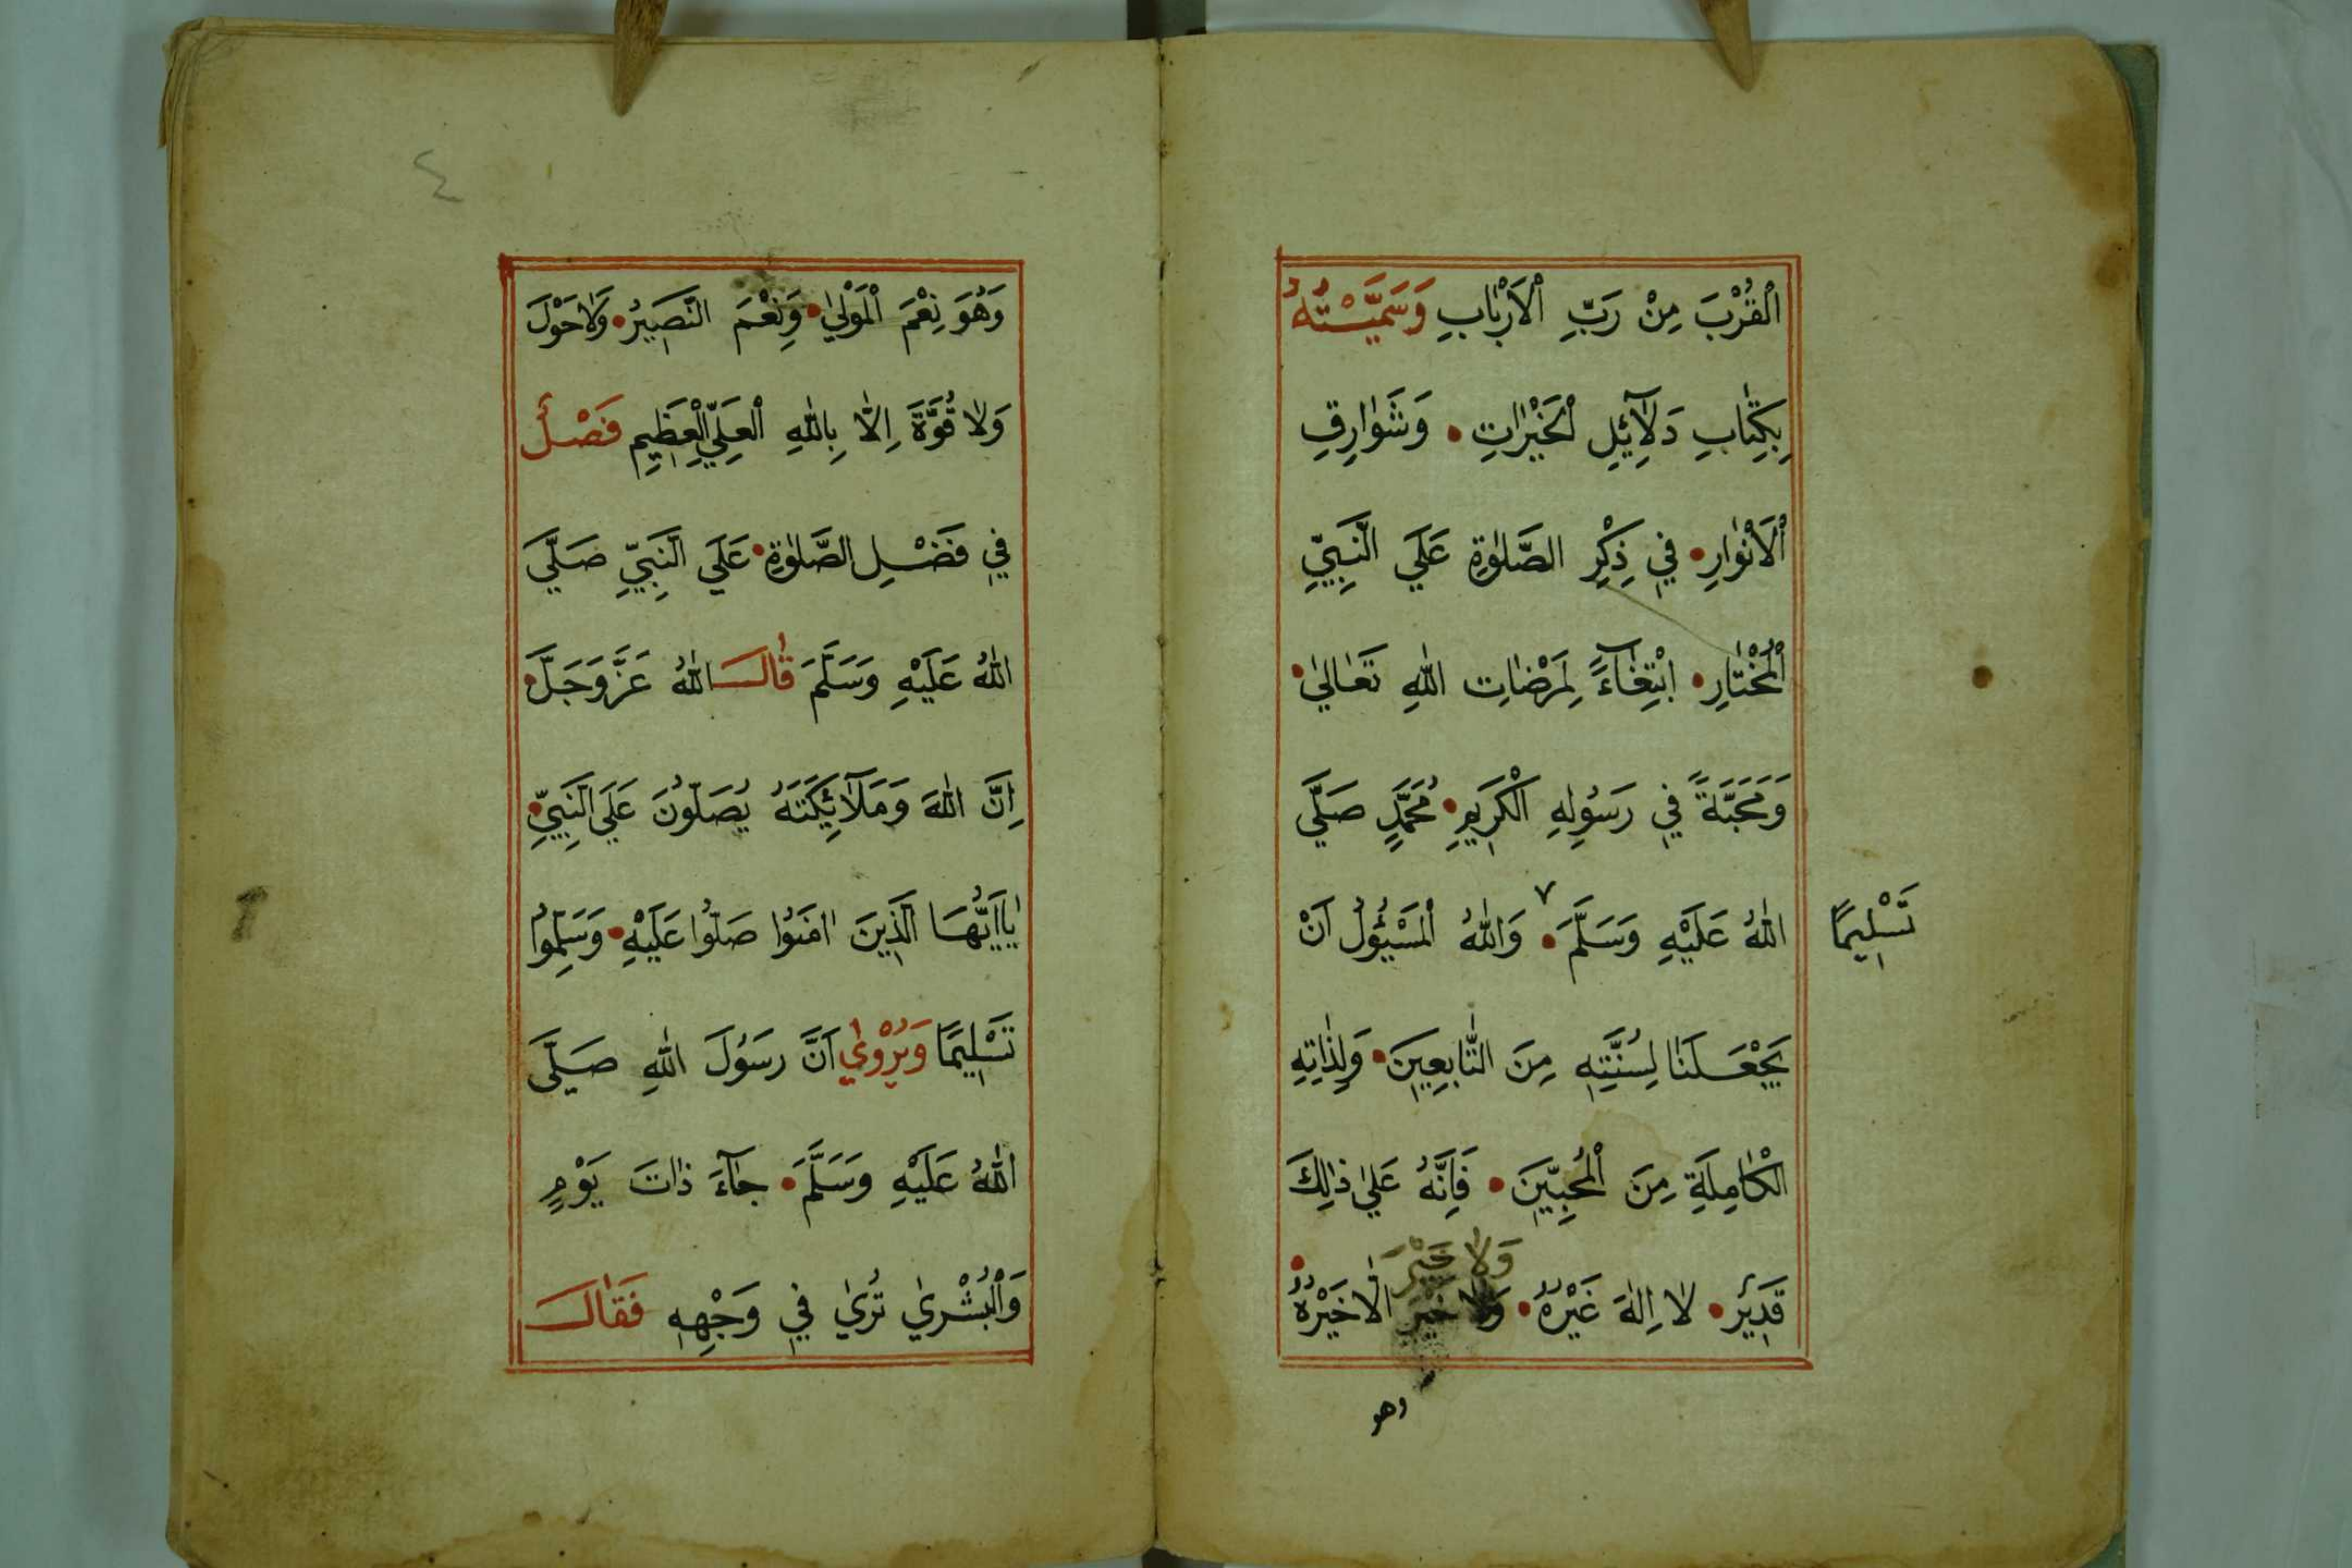 الْقُرْبَ مِنْ رَبِّ الْاَرْبَابِ وَسَمَّيْتُهُ
بِكِتَابِ دَلَآئِلِ الْخَيْرَاتِ • وَشَوَارِقِ
الْاَنْوَارِ • فِي ذِكْرِ الصَّلٰوةِ عَلَي النَّبِيِّ
الْمُخْتَارِ • ابْتِغَآءً لِمَرْضَاتِ اللّٰهِ تَعَالٰي •
وَمَحَبَّةً فِي رَسُولِهِ الْكَرِيمِ • مُحَمَّدٍ صَلَّي
اللّٰهُ عَلَيْهِ وَسَلَّمَ ٧ • وَاللّٰهُ الْمَسْئُولُ اَنْ
تَسْلِيمًا
يَجْعَلَنَا لِسُنَّتِهِ مِنَ التَّابِعِينَ • وَلِذَاتِهِ
الْكَامِلَةِ مِنَ الْمُحِبِّينَ • فَاِنَّهُ عَلٰي ذٰلِكَ
وَلَا خَيْرَ
قَدِيرٌ • لَا اِلٰهَ غَيْرُهُ • وَلَا خَيْرَ اِلَّا خَيْرُهُ •
وهو
٤
وَهُوَ نِعْمَ الْمَوْلٰي • وَنِعْمَ النَّصِيرُ • وَلَا حَوْلَ
وَلَا قُوَّةَ اِلَّا بِاللّٰهِ الْعَلِيِّ الْعَظِيمِ فَصْلٌ
فِي فَضْلِ الصَّلٰوةِ • عَلَي النَّبِيِّ صَلَّي
اللّٰهُ عَلَيْهِ وَسَلَّمَ قَالَ اللّٰهُ عَزَّ وَجَلَّ •
اِنَّ اللّٰهَ وَمَلَآئِكَتَهُ يُصَلُّونَ عَلَي النَّبِيِّ •
يَا اَيُّهَا الَّذِينَ اٰمَنُوا صَلُّوا عَلَيْهِ • وَسَلِّمُوا
تَسْلِيمًا وَيُرْوٰي اَنَّ رَسُولَ اللّٰهِ صَلَّي
اللّٰهُ عَلَيْهِ وَسَلَّمَ • جَآءَ ذَاتَ يَوْمٍ
وَالْبُشْرٰي تُرٰي فِي وَجْهِهِ فَقَالَ